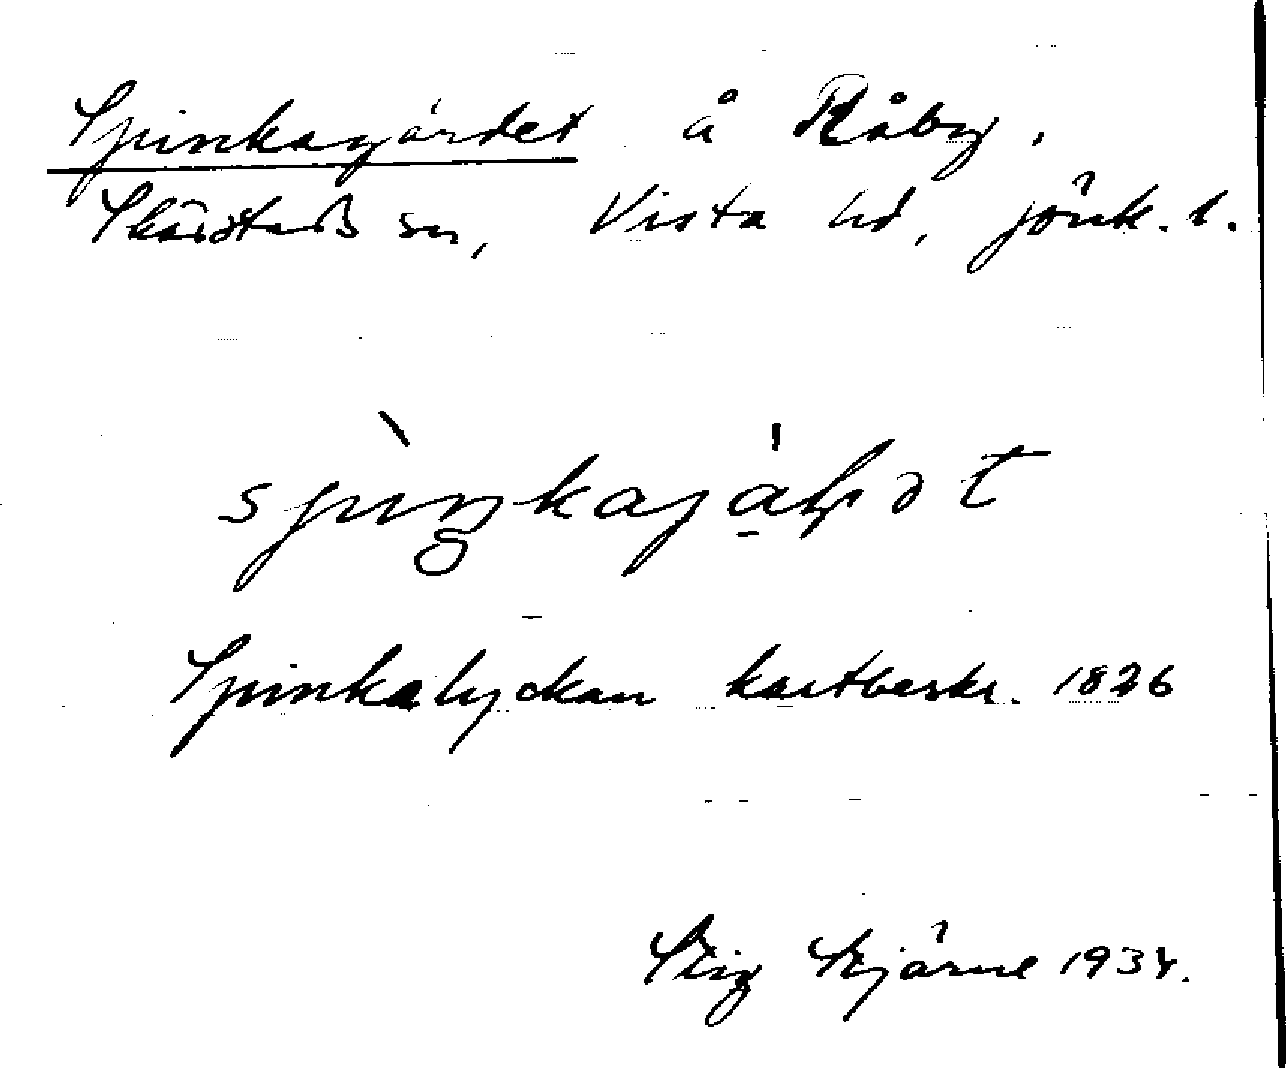 Spinkagärdet å Råby,
Skärstads sn, Vista hd, Jönk. l.
Spinkalyckan kartbeskr. 1826
Stig 1934.